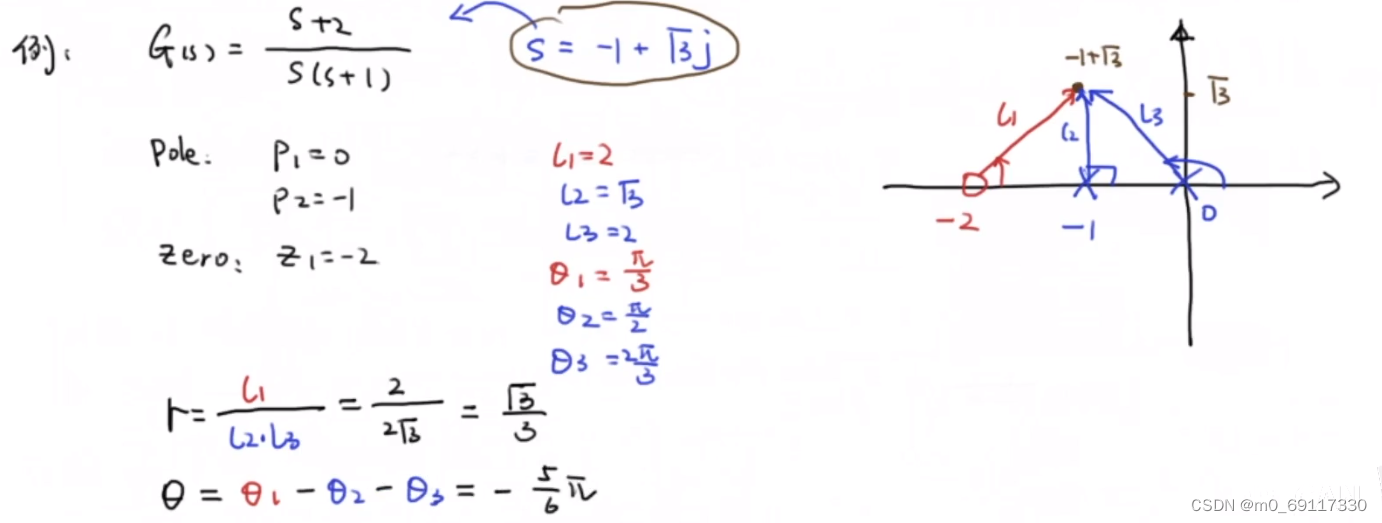 例: G(s) = (s+2)/(s(s+1)) s = -1 + √3 j
Pole: P1 = 0
P2 = -1
Zero: Z1 = -2
L1 = 2
L2 = √3
L3 = 2
θ1 = π/3
θ2 = π/2
θ3 = 2π/3
r = L1/(L2·L3) = 2/(2√3) = √3/3
θ = θ1 - θ2 - θ3 = - 5/6 π
-1+√3
√3
L1
L2
L3
-2
-1
0
CSDN @m0_69117330